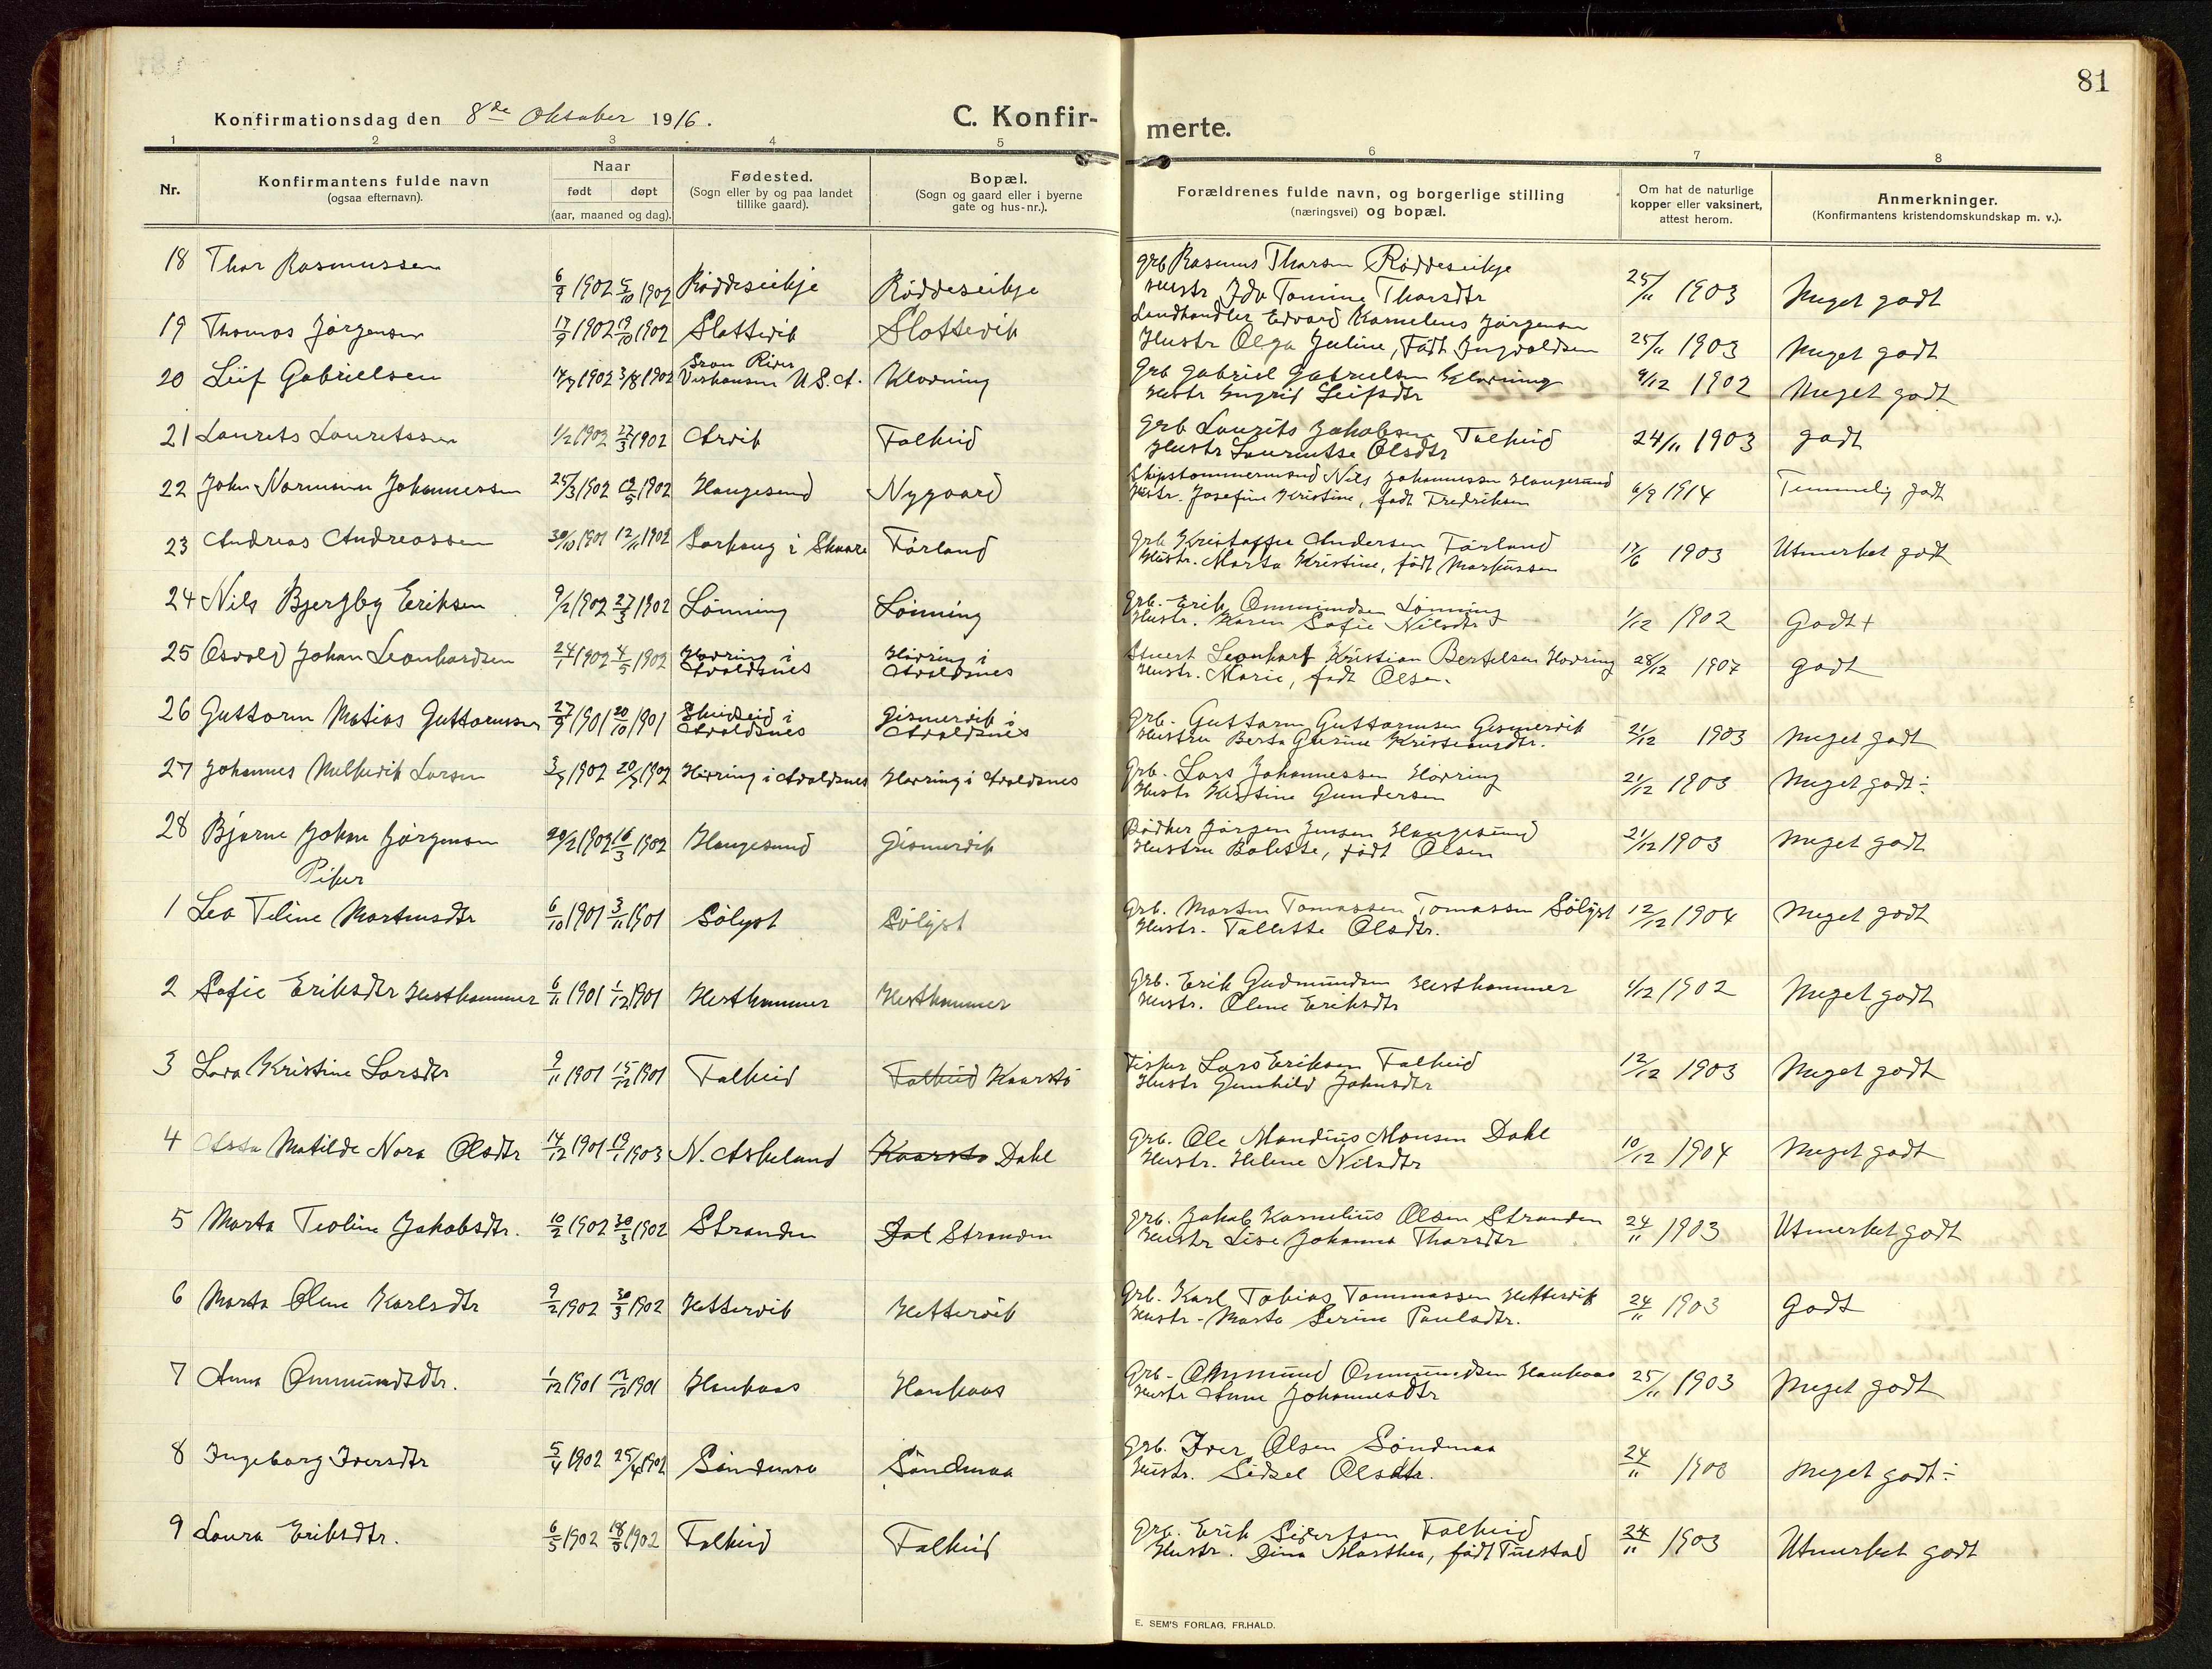 81
Konfirmationsdag den 8de Oktober 1916.
C. Konfirmerte.
1 2 3 4 5 6 7 8
Nr.
Konfirmantens fulde navn
(ogsaa efternavn).
Naar
født døpt
(aar, maaned og dag).
Fødested.
(Sogn eller by og paa landet
tillike gaard).
Bopæl.
(Sogn og gaard eller i byerne
gate og hus-nr.).
Forældrenes fulde navn, og borgerlige stilling
(næringsvei) og bopæl.
Om hat de naturlige
kopper eller vaksinert,
attest herom.
Anmerkninger.
(Konfirmantens kristendomskundskap m. v.).
18 Thor Rasmussen 6/9 1902 5/10 1902 Røddeseikje Røddeseikje grb Rasmus Thorsen Røddeseikje 25/11 1903 Meget godt
Hustr Ida Tomine Thorsdtr
19 Thomas Jørgensen 17/9 1902 19/10 1902 Slottevik Slottevik Landhandler Edvard Kornelius Jørgensen 25/11 1903 Meget godt
Hustr Olga Juline, født Ingvaldsen
20 Leif Gabrielsen 1902 3/8 1902 River U.S.A. Klovning Grb Gabriel Gabrielsen Klovning 9/12 1902 Meget godt
Hustr Ingrid Leifsdtr
21 Laurits Lauritssen 1/2 1902 27/3 1902 Arvik Falkeid Grb Laurits Jakobsen Falkeid 24/11 1903 godt
Hustr Lauritse Olsdtr
22 John Normann Johannessen 25/3 1902 1902 Haugesund Nygaard Skipstømmermand Nils Johannessen Haugesund 6/9 1914 Temmelig godt
Hustr. Josefine Kristine, født Fredriksen
23 Andreas Andreassen 30/10 1901 12/11 1902 Sørhaug i Skaare Førland Grb Kristoffer Andersen Førland 17/6 1903 Utmerket godt
Hustr. Marta Kristine, født Markussen
24 Nils Bjergby Eriksen 9/2 1902 27/3 1902 Lønning Lønning Grb. Erik Ommundsen Lønning 1/12 1902 Godt +
Hustr. Karen Sofie Nilsdtr
25 Osvald Johan Leonhardsen 24/1 1902 4/5 1902 Høvring i Avaldsnes Høvring i Avaldsnes Leonhart Kristian Bertelsen Hovring 28/12 1907 godt
Hustr. Marie, født Olsen.
26 Guttorm Matias Guttormsen 27/9 1901 20/10 1901 Skeidseid i Avaldsnes Gismervik i Avaldsnes Grb. Guttorm Guttormsen Gismervik 21/12 1903 Meget godt
Hustru Berta Gurine Kristiansdtr.
27 Johannes Larsen 1902 1902 Høvring i Avaldsnes Hovring i Avaldsnes Grb. Lars Johannessen Høvring 21/12 1903 Meget godt÷
Hustr Kristine Gundersen
28 Bjarne Johan Jørgensen 1902 16/3 1902 Haugesund Gismervik Bødker Jørgen Jensen Haugesund 21/12 1903 Meget godt
Hustru Bolette, født Olsen
Piker
1 Lea Teline Martinsdtr 6/10 1901 3/11 1901 Sølyst Sølyst Grb. Martin Tomassen Tomassen Sølyst 12/12 1904 Meget godt
Hustr. Tallette Olsdtr.
2 Sofie Eriksdtr Hesthammer 6/11 1901 1/12 1901 Hesthammer Hesthammer Grb. Erik Gudmundsen Hesthammer 4/12 1902 Meget godt
Hustr. Oline Eriksdtr
3 Lava Kristine Larsdtr 9/11 1901 15/12 1901 Falkeid Falkeid Kaarstø Fisker Lars Eriksen Falkeid 12/12 1903 Meget godt
Hustr Gunhild Johnsdtr
4 Asta Matilde Nora Olsdtr 14/12 1901 19/1 1903 N. Askeland Kaarstø Dahl Grb. Ole Mandius Monsen Dahl 10/12 1904 Meget godt
Hustr. Helene Nilsdtr
5 Marta Teoline Jakobsdtr. 10/2 1902 30/3 1902 Stranden Dal Stranden Grb. Jakob Kornelius Olsen Stranden 24/11 1903 Utmerket godt
Hustr Lise Johanna Thorsdtr
6 Marta Oline Karlsdtr 9/2 1902 30/3 1902 Hettervik Hettervik Grb. Karl Tobias Tommassen Hettervik 24/11 1903 Godt
Hustr. Marta Serine Paulsdtr.
7 Anna Ommundsdtr. 1/12 1901 1901 Haukaas Haukaas Grb. Ommund Ommundsen Haukaas 25/11 1903 Meget godt
Hustr Anne Johannesdtr
8 Ingeborg Iversdtr 5/4 1902 25/4 1902 Søndmaa Søndmaa Grb. Iver Olsen Søndmaa 24/11 1903 Meget godt ÷
Hustr. Sidsel Olsdtr.
9 Laura Eriksdtr. 6/5 1902 1902 Falkeid Falkeid Grb. Erik Sivertsen Falkeid 24/11 1903 Utmerket godt
Hustr. Dina Marthea, født Tuestad
E. SEM'S FORLAG, FR.HALD.